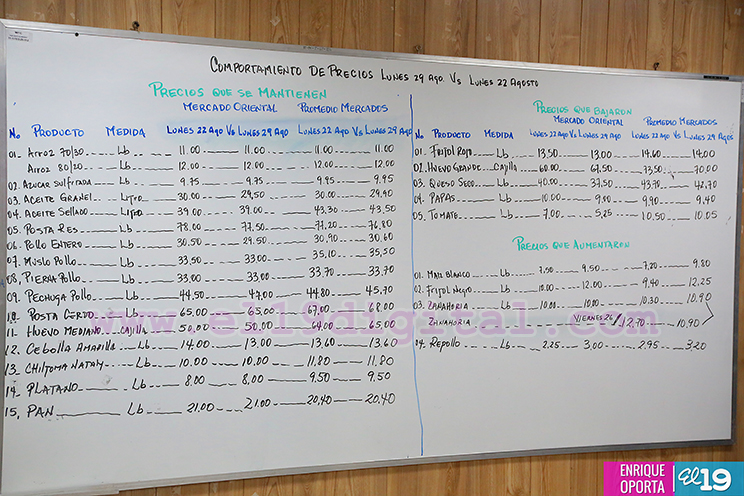 COMPORTAMIENTO DE PRECIOS LUNES 29 AGO. VS LUNES 22 AGOSTO
PRECIOS QUE SE MANTIENEN
MERCADO ORIENTAL PROMEDIO MERCADOS
No PRODUCTO MEDIDA LUNES 22 AGO VS LUNES 29 AGO LUNES 22 AGO VS LUNES 29 AGO
01. ARROZ 70/30 Lb 11.00 11.00 11.00 11.00
ARROZ 80/20 Lb 12.00 12.00 12.00 12.00
02. AZUCAR SULFITADA Lb 9.75 9.75 9.95 9.95
03. ACEITE GRANEL LITRO 30.00 29.50 30.00 29.40
04. ACEITE SELLADO LITRO 39.00 39.00 43.30 43.50
05. POSTA RES Lb 78.00 77.50 77.20 76.80
06. POLLO ENTERO Lb 30.50 29.50 30.90 30.60
07. MUSLO POLLO Lb 33.50 33.00 35.10 35.50
08. PIERNA POLLO Lb 33.00 33.00 33.70 33.70
09. PECHUGA POLLO Lb 44.50 47.00 44.80 45.70
10. POSTA CERDO Lb 65.00 65.00 67.00 68.00
11. HUEVO MEDIANO CAJILLA 50.00 50.00 64.00 65.00
12. CEBOLLA AMARILLA Lb 14.00 13.00 13.60 13.60
13. CHILTOMA NATALY Lb 10.00 10.00 11.80 11.80
14. PLATANO Lb 8.00 8.00 9.50 9.50
15. PAN Lb 21.00 21.00 20.40 20.40
PRECIOS QUE BAJARON
MERCADO ORIENTAL PROMEDIO MERCADOS
No PRODUCTO MEDIDA LUNES 22 AGO VS LUNES 29 AGO LUNES 22 AGO VS LUNES 29 AGO
01. FRIJOL ROJO Lb 13.50 13.00 14.60 14.00
02. HUEVO GRANDE CAJILLA 60.00 69.50 73.50 70.00
03. QUESO SECO Lb 40.00 37.50 43.70 42.70
04. PAPAS Lb 10.00 9.80 9.90 9.40
05. TOMATE Lb 7.00 5.25 10.50 10.05
PRECIOS QUE AUMENTARON
01. MAIZ BLANCO Lb 7.50 9.50 7.20 9.80
02. FRIJOL NEGRO Lb 10.00 12.00 9.40 12.25
03. ZANAHORIA Lb 10.00 10.00 10.30 10.90
ZANAHORIA VIERNES 26 / 12.70 10.90
04. REPOLLO Lb 2.25 3.00 2.95 3.20
www.el19digital.com
ENRIQUE
OPORTA
El 19